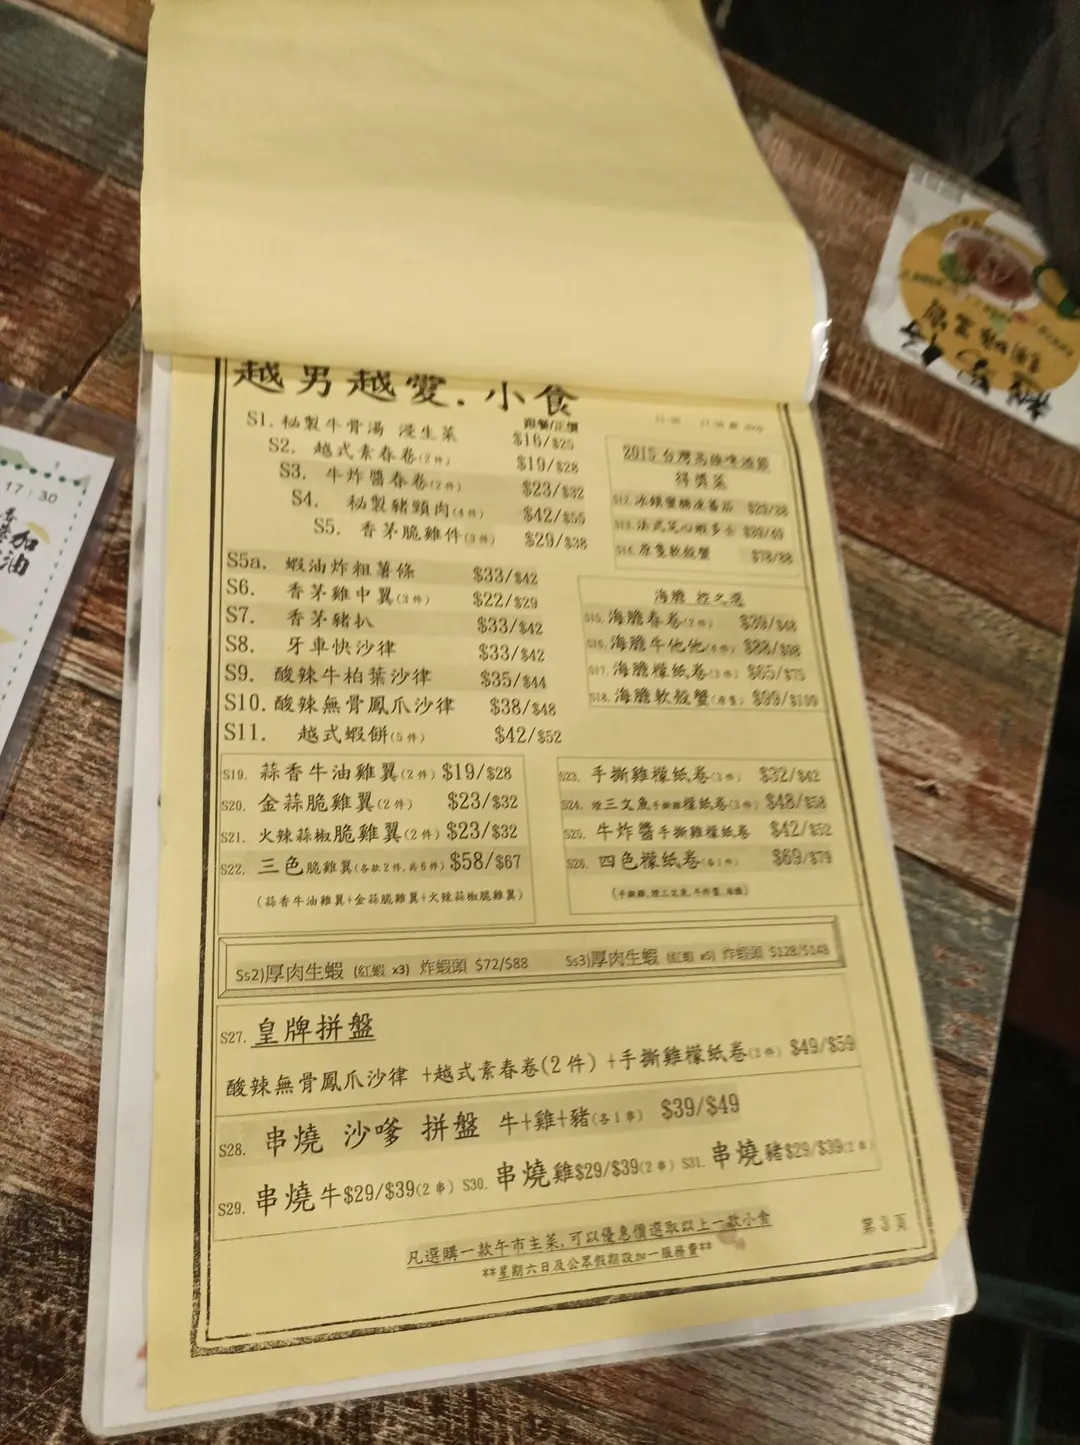 越男越愛.小食
跟餐/正價
S1. 秘製牛骨湯 浸生菜 $16/$25
S2. 越式素春卷(2件) $19/$28
S3. 牛炸醬春卷(2件) $23/$32
S4. 秘製豬頸肉(4件) $42/$55
S5. 香茅脆雞件(3件) $29/$38
S5a. 蝦油炸粗薯條 $33/$42
S6. 香茅雞中翼(3件) $22/$29
S7. 香茅豬扒 $33/$42
S8. 牙車快沙律 $33/$42
S9. 酸辣牛柏葉沙律 $35/$44
S10. 酸辣無骨鳳爪沙律 $38/$48
S11. 越式蝦餅(5件) $42/$52
2015台灣高雄啤酒節
得獎菜
S13. 法式芝心蝦多士 $39/49
S14. 原隻軟殼蟹 $78/88
海膽 控之選
S15. 海膽春卷(2件) $39/$48
S16. 海膽牛他他 $88/$98
S17. 海膽檬紙卷(3件) $65/$75
S18. 海膽軟殼蟹(原隻) $99/$109
S19. 蒜香牛油雞翼(2件) $19/$28
S20. 金蒜脆雞翼(2件) $23/$32
S21. 火辣蒜椒脆雞翼(2件) $23/$32
S22. 三色脆雞翼(各款2件,共6件) $58/$67
(蒜香牛油雞翼+金蒜脆雞翼+火辣蒜椒脆雞翼)
S23. 手撕雞檬紙卷(3件) $32/$42
S24. 煙三文魚手撕雞檬紙卷(3件) $48/$58
S25. 牛炸醬手撕雞檬紙卷 $42/$52
S26. 四色檬紙卷(各1件) $69/$79
Ss2)厚肉生蝦 (紅蝦 x3) 炸蝦頭 $72/$88
Ss3)厚肉生蝦 (紅蝦 x5) 炸蝦頭 $128/$148
S27. 皇牌拼盤
酸辣無骨鳳爪沙律 +越式素春卷(2件) +手撕雞檬紙卷(3件) $49/$59
S28. 串燒 沙嗲 拼盤 牛+雞+豬(各1串) $39/$49
S29. 串燒牛$29/$39(2串) S30. 串燒雞$29/$39(2串) S31. 串燒豬$29/$39(2串)
凡選購一款午市主菜,可以優惠價選取以上一款小食
**星期六日及公眾假期設加一服務費**
第3頁
17:30
加油